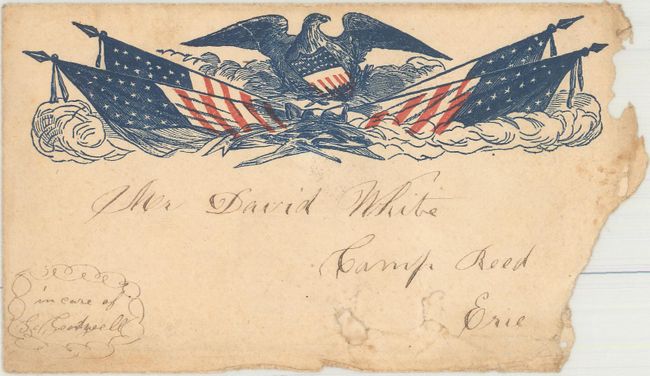 Mr David White
Camp Reed
Erie
in care of
Goodwell